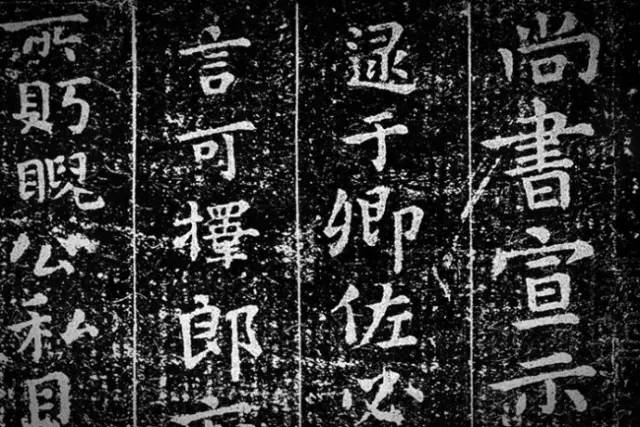 尚書宣示
逮于卿佐必
言可擇郎
所眄睨公私